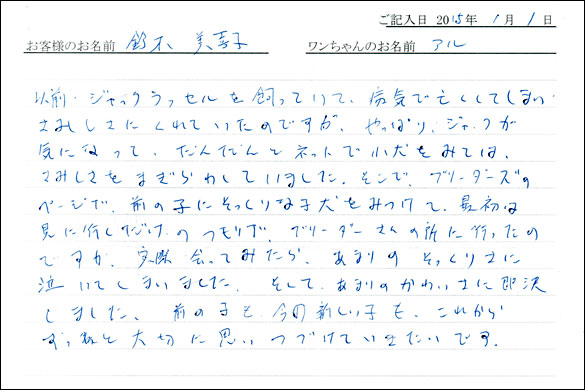 ご記入日 2015年 1月 1日
お客様のお名前 鈴木 美喜子 ワンちゃんのお名前 アル
以前、ジャックラッセルを飼っていて、病気で亡くしてしまい
さみしさにくれていたのですが、やっぱり、ジャックが
気になって、だんだんとネットで小犬をみては、
さみしさをまぎらわしていました。そこで、ブリーダーズの
ページで、前の子にそっくりな子犬をみつけて、最初は
見に行くだけのつもりが、ブリーダーさんの所に行ったの
ですが、実際会ってみたら、あまりのそっくりさに
泣いてしまいました。そして、あまりのかわいさに即決
しました。前の子も、今の新しい子も、これから
ずっと大切に思いつづけていきたいです。